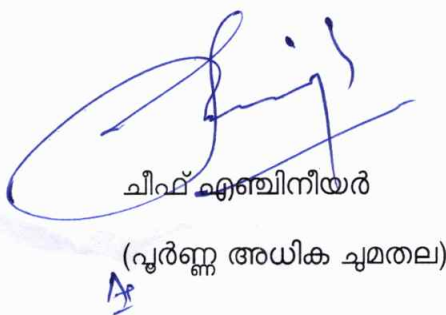 ചീഫ് എഞ്ചിനീയർ
(പൂർണ്ണ അധിക ചുമതല)